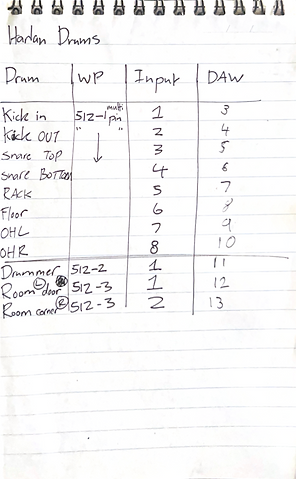 Harlan Drums
Drum WP Input DAW
Kick in 512-1 multi pin 1 3
Kick OUT " " 2 4
Snare TOP 3 5
Snare Bottom 4 6
RACK 5 7
Floor 6 8
OHL 7 9
OHR 8 10
Drummer 512-2 1 11
Room door L 512-3 1 12
Room corner R 512-3 2 13